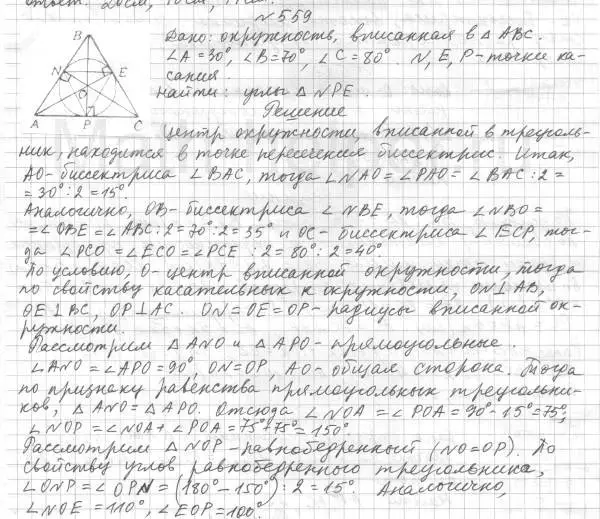 ответ: 20см, 10см, 11см.
№559
Дано: окружность, вписанная в △ ABC.
∠A = 30°, ∠B = 70°, ∠C = 80°. N, E, P - точки ка-
сания.
Найти: углы △ NPE.
Решение
Центр окружности, вписанной в треуголь-
ник, находится в точке пересечения биссектрис. Итак,
AO - биссектриса ∠BAC, тогда ∠NAO = ∠PAO = ∠BAC : 2 =
= 30° : 2 = 15°.
Аналогично, OB - биссектриса ∠NBE, тогда ∠NBO =
= ∠OBE = ∠ABC : 2 = 70° : 2 = 35° и OC - биссектриса ∠ECP, тог-
да ∠PCO = ∠ECO = ∠PCE : 2 = 80° : 2 = 40°.
По условию, O - центр вписанной окружности, тогда
по свойству касательных к окружности, ON ⊥ AB,
OE ⊥ BC, OP ⊥ AC. ON = OE = OP - радиусы вписанной ок-
ружности.
Рассмотрим △ ANO и △ APO - прямоугольные.
∠ANO = ∠APO = 90°, ON = OP, AO - общая сторона. Тогда
по признаку равенства прямоугольных треугольни-
ков, △ ANO = △ APO. Отсюда ∠NOA = ∠POA = 90° - 15° = 75°,
∠NOP = ∠NOA + ∠POA = 75° + 75° = 150°
Рассмотрим △ NOP - равнобедренный (NO = OP). По
свойству углов равнобедренного треугольника,
∠ONP = ∠OPN = (180° - 150°) : 2 = 15°. Аналогично,
∠NOE = 110°, ∠EOP = 100°.
B
N
E
O
A
P
C